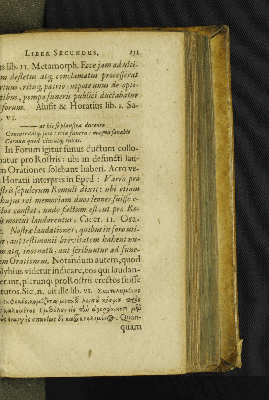 LIBER SECUNDUS. 251
us lib. 11. Metamorph. Ecce jam ad ulti-
m defletus atq, conclamatus processerat
rtuus, rituq, patrio, utpote unus de opti-
tibus, pompa funeris publici ductabatur
forum. Alusit & Horatius lib. 1. Sa-
. VI.
at hic si plaustra ducenta
Concurrantq, foro tria funera, magna sonabit
Cornua quod vincatq, tubas.
In Forum igitur funus ductum collo-
batur pro Rostris: ubi in defuncti lau-
m Orationes solebant haberi. Acro ve-
Horatii interpres in Epod: Varro pro
stris sepulcrum Romuli dixit: ubi etiam
hujus rei memoriam duos leones fuisse
constat, unde factum est, ut pro Ro-
mortui laudarentur, Cicer. 11. Ora.
Nostræ laudationes, quibus in foro uti-
r, aut testimonii brevitatem habent nu-
m atq, inornatã, aut scribuntur ad fune-
em Orationem. Notandum autem, quod
olybius videtur indicare, eos qui laudan-
erunt, plerunq; pro Rostris erectos fuisse
tutos. Sic n. ait ille lib. VI.
Quan-
quam